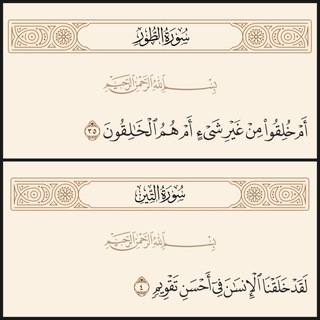 سُورَةُ الطُّورِ
بِسْمِ اللَّهِ الرَّحْمَٰنِ الرَّحِيمِ
أَمْ خُلِقُوا۟ مِنْ غَيْرِ شَىْءٍ أَمْ هُمُ الْخَٰلِقُونَ ٣٥
سُورَةُ التِّينِ
بِسْمِ اللَّهِ الرَّحْمَٰنِ الرَّحِيمِ
لَقَدْ خَلَقْنَا الْإِنسَٰنَ فِىٓ أَحْسَنِ تَقْوِيمٍ ٤